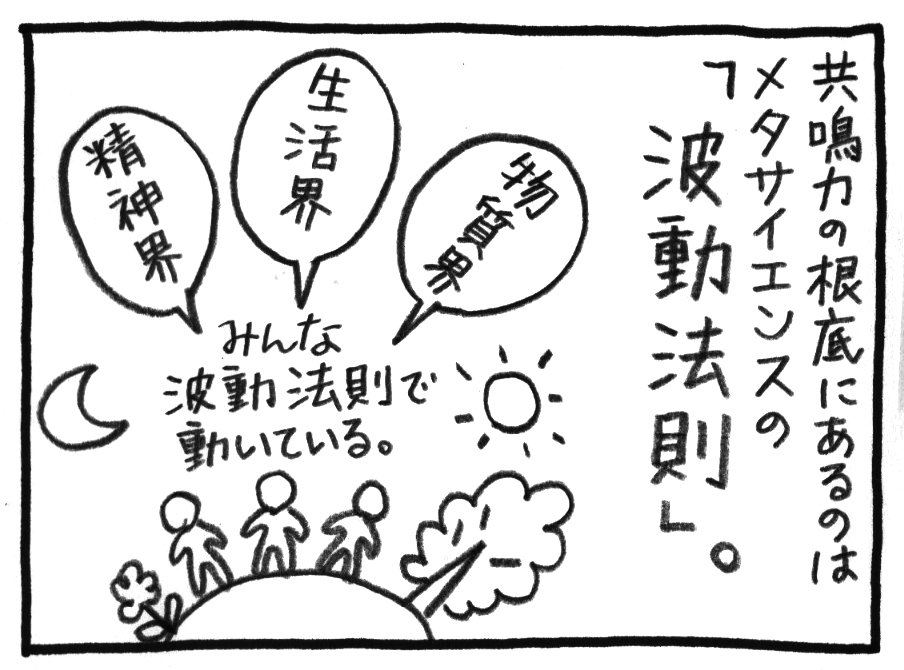 共鳴力の根底にあるのは
メタサイエンスの
「波動法則」。
物質界
生活界
精神界
みんな
波動法則で
動いている。